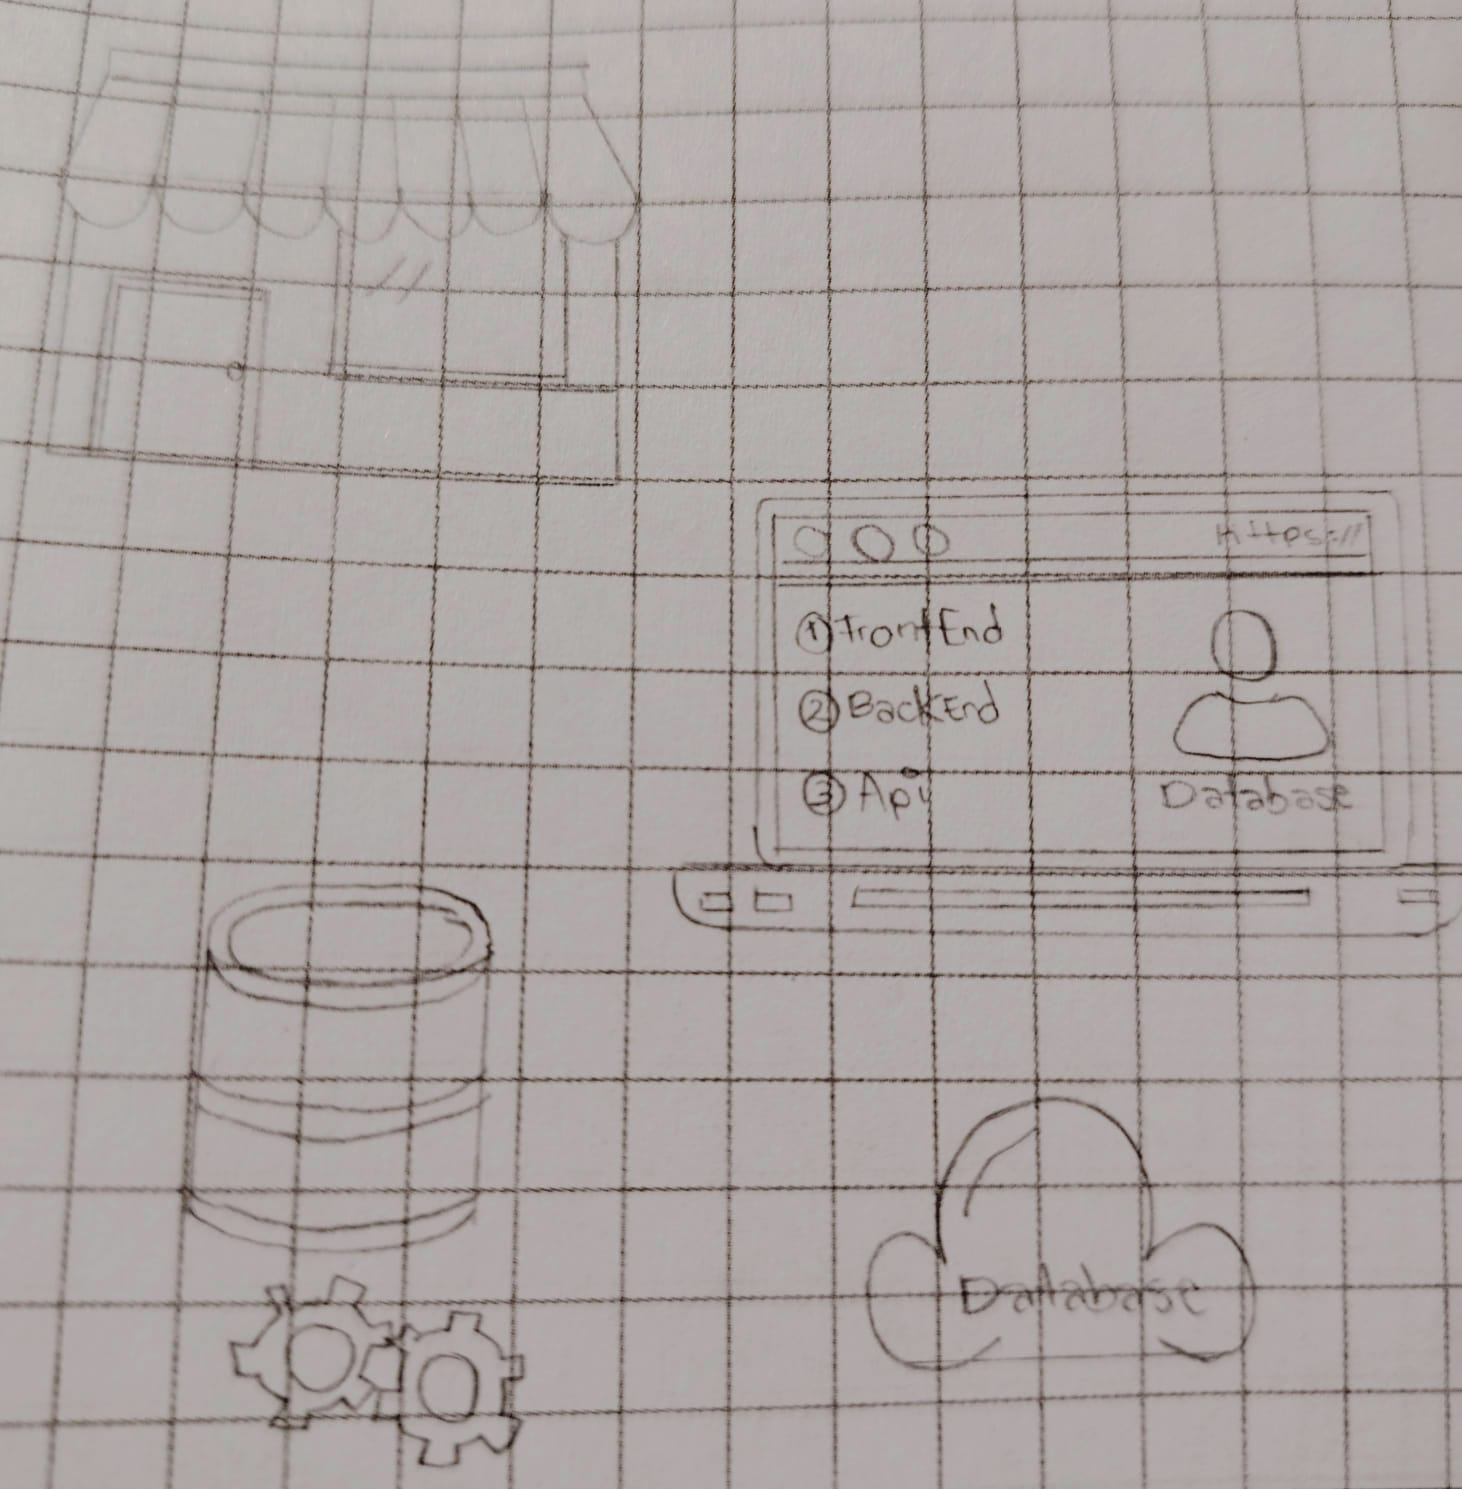 Https://
① FrontEnd
② BackEnd
③ Api
Database
Database